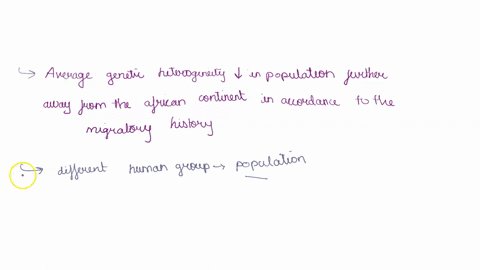 ↳ Average genetic heterogeneity ↓ in population further
away from the african continent in accordance to the
migratory history
↳ different human group → population